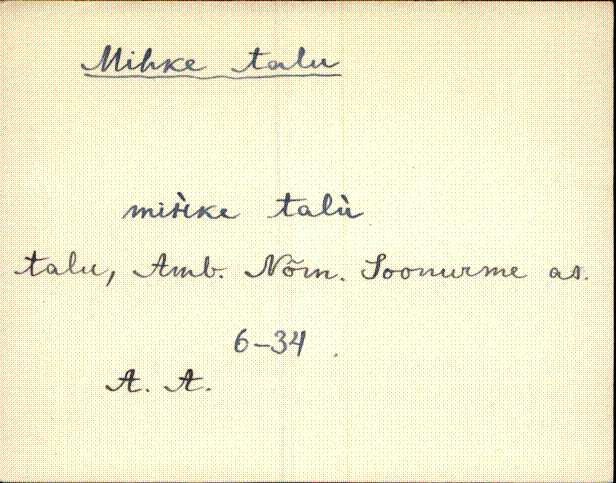 Mihke talu
mìʜ̀ke talù
talu, Amb. Nõm. Soonurme as.
6-34.
A. A.